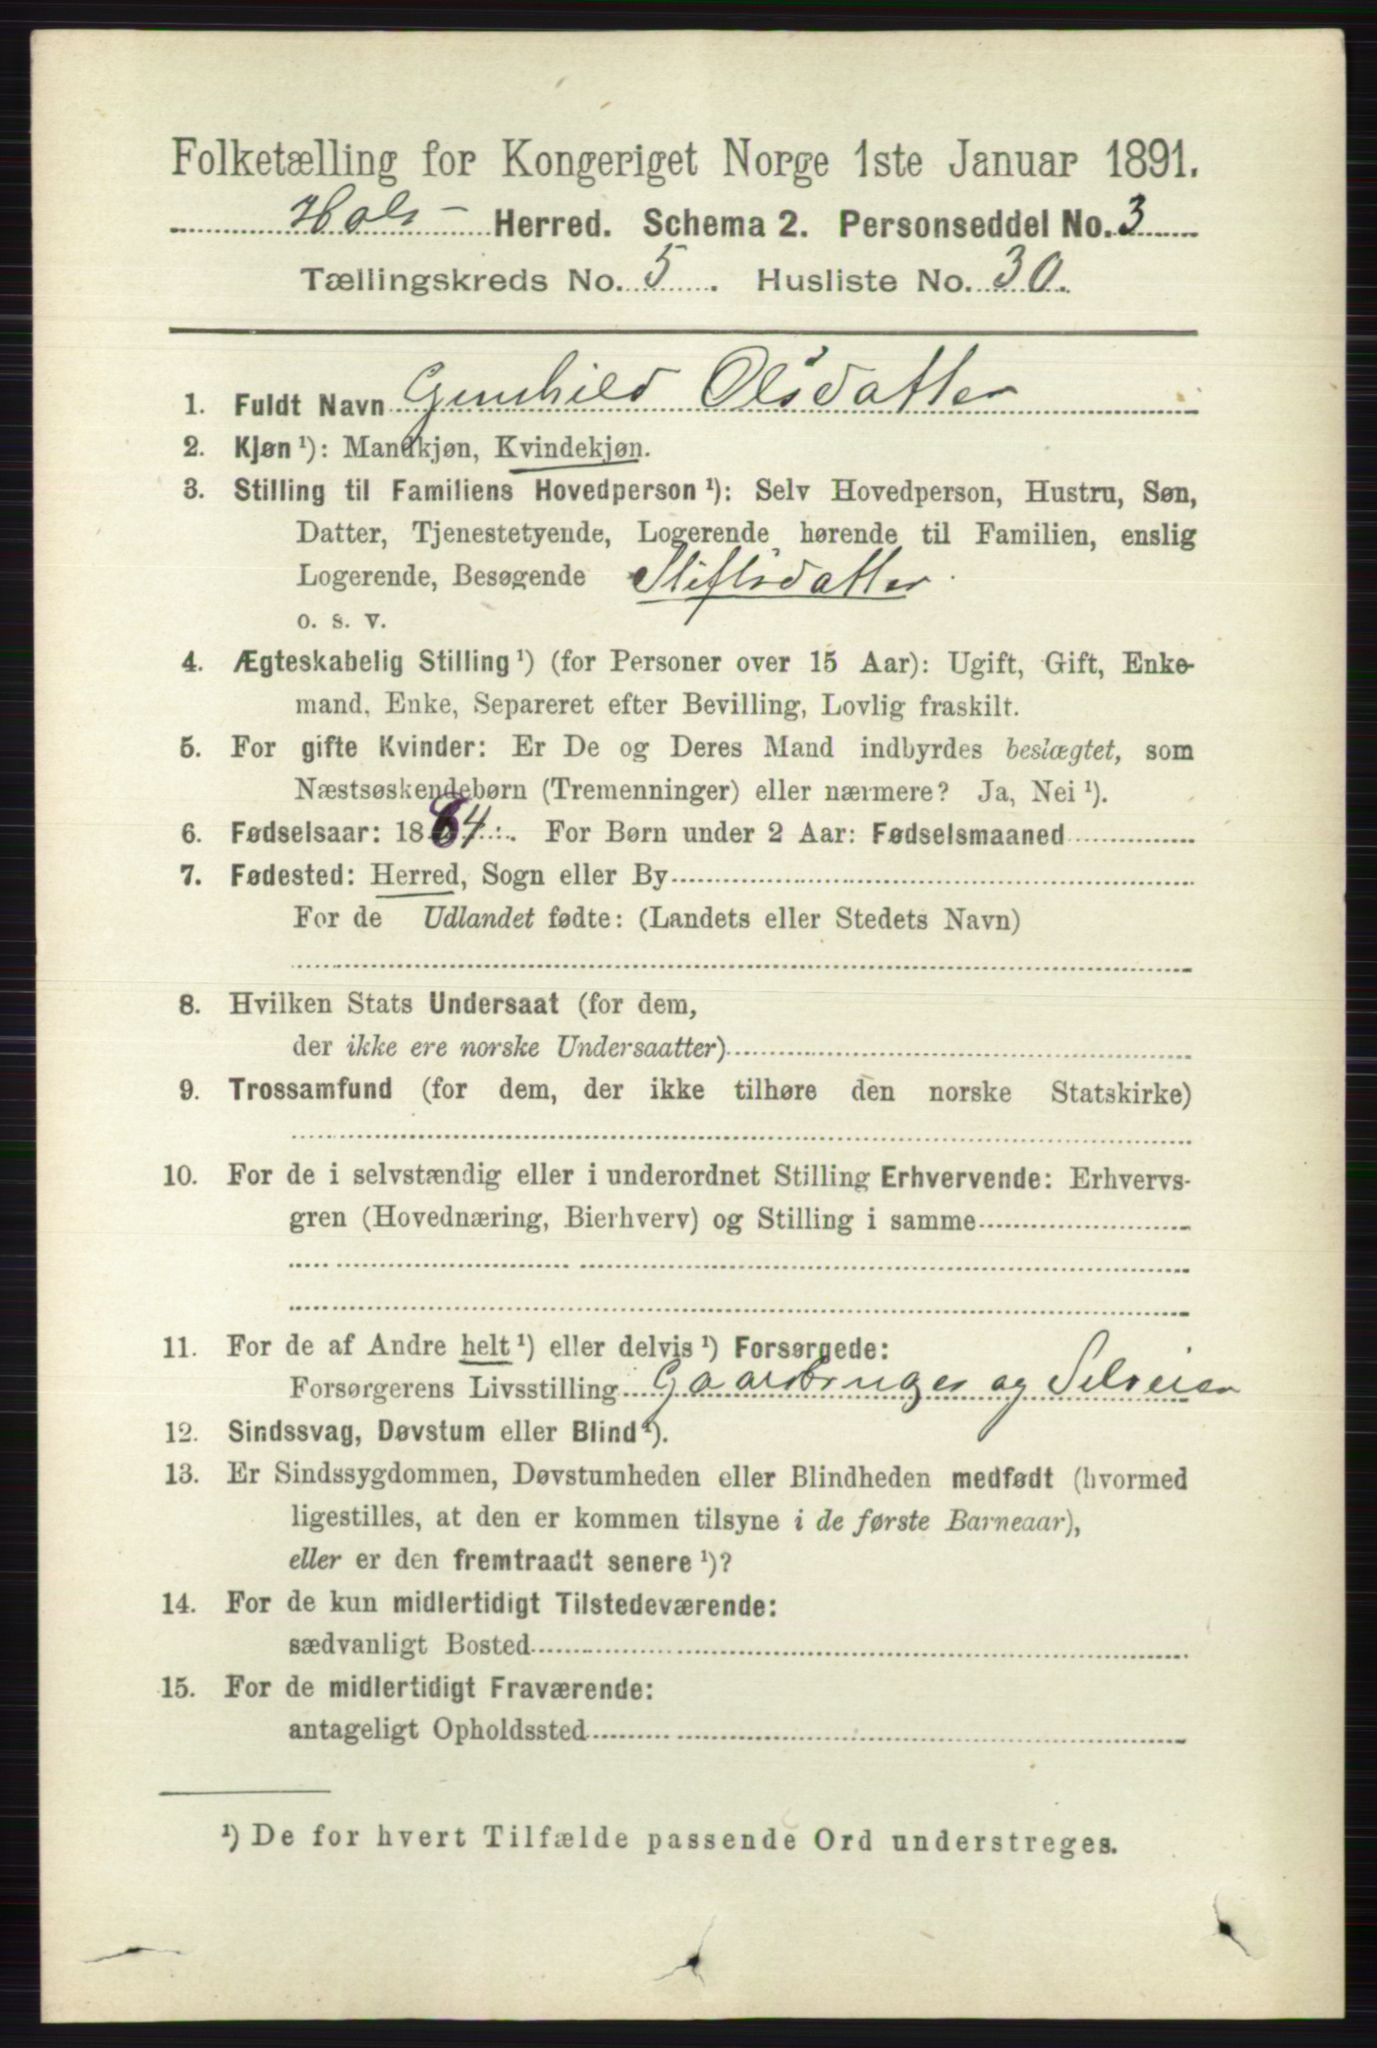 Folketælling for Kongeriget Norge 1ste Januar 1891.
Hols Herred. Schema 2. Personseddel No. 3
Tællingskreds No. 5. Husliste No. 30.
1. Fuldt Navn Gunhild Olsdatter
2. Kjøn ¹): Mandkjøn, Kvindekjøn.
3. Stilling til Familiens Hovedperson ¹): Selv Hovedperson, Hustru, Søn,
Datter, Tjenestetyende, Logerende hørende til Familien, enslig
Logerende, Besøgende Stifsdatter
o. s. v.
4. Ægteskabelig Stilling ¹) (for Personer over 15 Aar): Ugift, Gift, Enke-
mand, Enke, Separeret efter Bevilling, Lovlig fraskilt.
5. For gifte Kvinder: Er De og Deres Mand indbyrdes beslægtet, som
Næstsøskendebørn (Tremenninger) eller nærmere? Ja, Nei ¹).
6. Fødselsaar: 1884. For Børn under 2 Aar: Fødselsmaaned
7. Fødested: Herred, Sogn eller By
For de Udlandet fødte: (Landets eller Stedets Navn)
8. Hvilken Stats Undersaat (for dem,
der ikke ere norske Undersaatter)
9. Trossamfund (for dem, der ikke tilhøre den norske Statskirke)
10. For de i selvstændig eller i underordnet Stilling Erhvervende: Erhvervs-
gren (Hovednæring, Bierhverv) og Stilling i samme
11. For de af Andre helt ¹) eller delvis ¹) Forsørgede:
Forsørgerens Livsstilling Gaardbruger og Selveier
12. Sindssvag, Døvstum eller Blind ¹).
13. Er Sindssygdommen, Døvstumheden eller Blindheden medfødt (hvormed
ligestilles, at den er kommen tilsyne i de første Barneaar),
eller er den fremtraadt senere ¹)?
14. For de kun midlertidigt Tilstedeværende:
sædvanligt Bosted
15. For de midlertidigt Fraværende:
antageligt Opholdssted
¹) De for hvert Tilfælde passende Ord understreges.